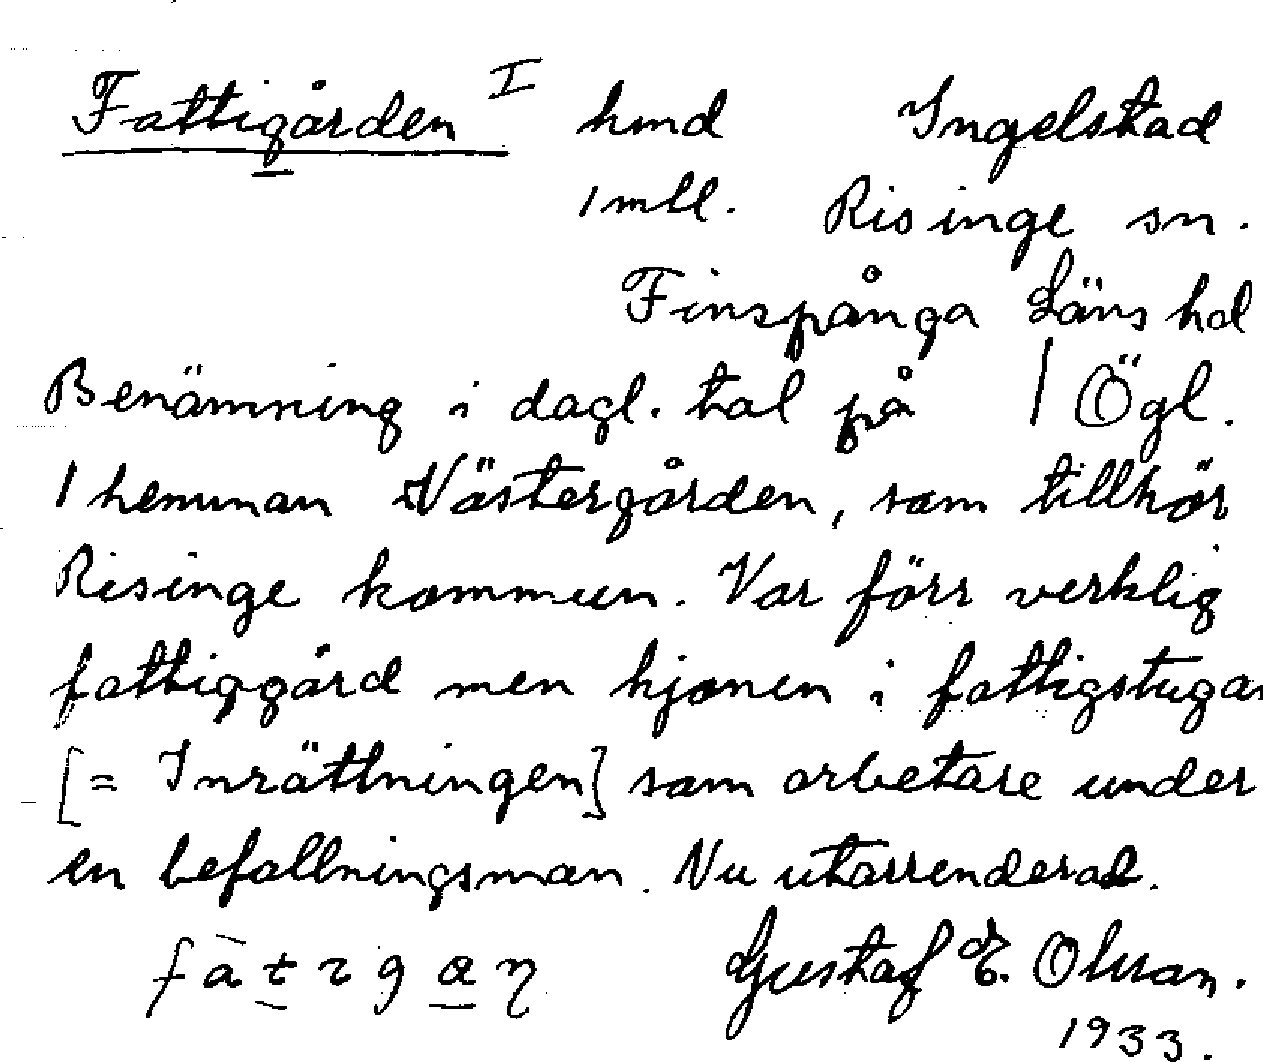 Fattigården I hmd Ingelstad
1 mtl. Risinge sn.
Finspånga Läns hd
Benämning i dagl. tal på | Ögl.
1 hemman Västergården, som tillhör
Risinge kommun. Var förr verklig
fattiggård men hjonen i fattigstugan
[= Inrättningen] som arbetare under
en befallningsman. Nu utarrenderad.
Gustaf E. Olsson.
1933.